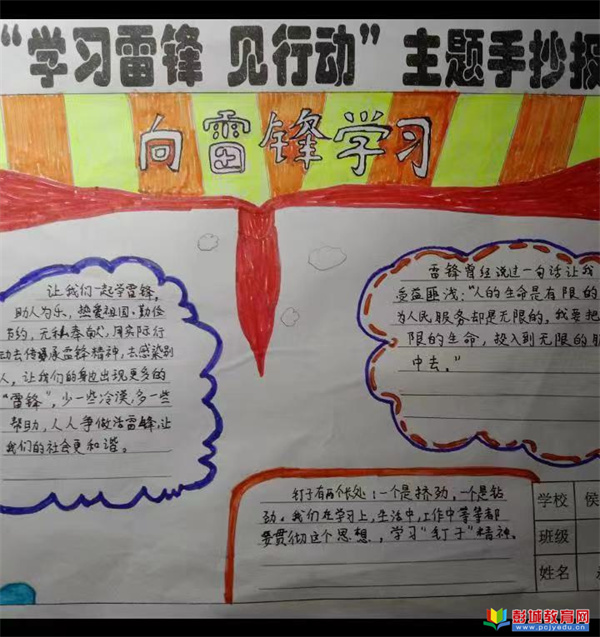 “学习雷锋 见行动”主题手抄报
向雷锋学习
让我们一起学雷锋,
助人为乐，热爱祖国，勤俭
节约，无私奉献，用实际行
动去传播雷锋精神，去感染别
人，让我们的身边出现更多的
“雷锋”，少一些冷漠，多一些
帮助，人人争做活雷锋，让
我们的社会更和谐。
雷锋曾经说过一句话让我
受益匪浅：“人的生命是有限的
为人民服务却是无限的，我要把
限的生命，投入到无限的服
中去。”
钉子有两个长处：一个是挤劲，一个是钻
劲。我们在学习上，生活中，工作中等等都
要贯彻这个思想，学习“钉子”精神。
学校 侯
班级
姓名
彭城教育网
www.pcjyedu.cn